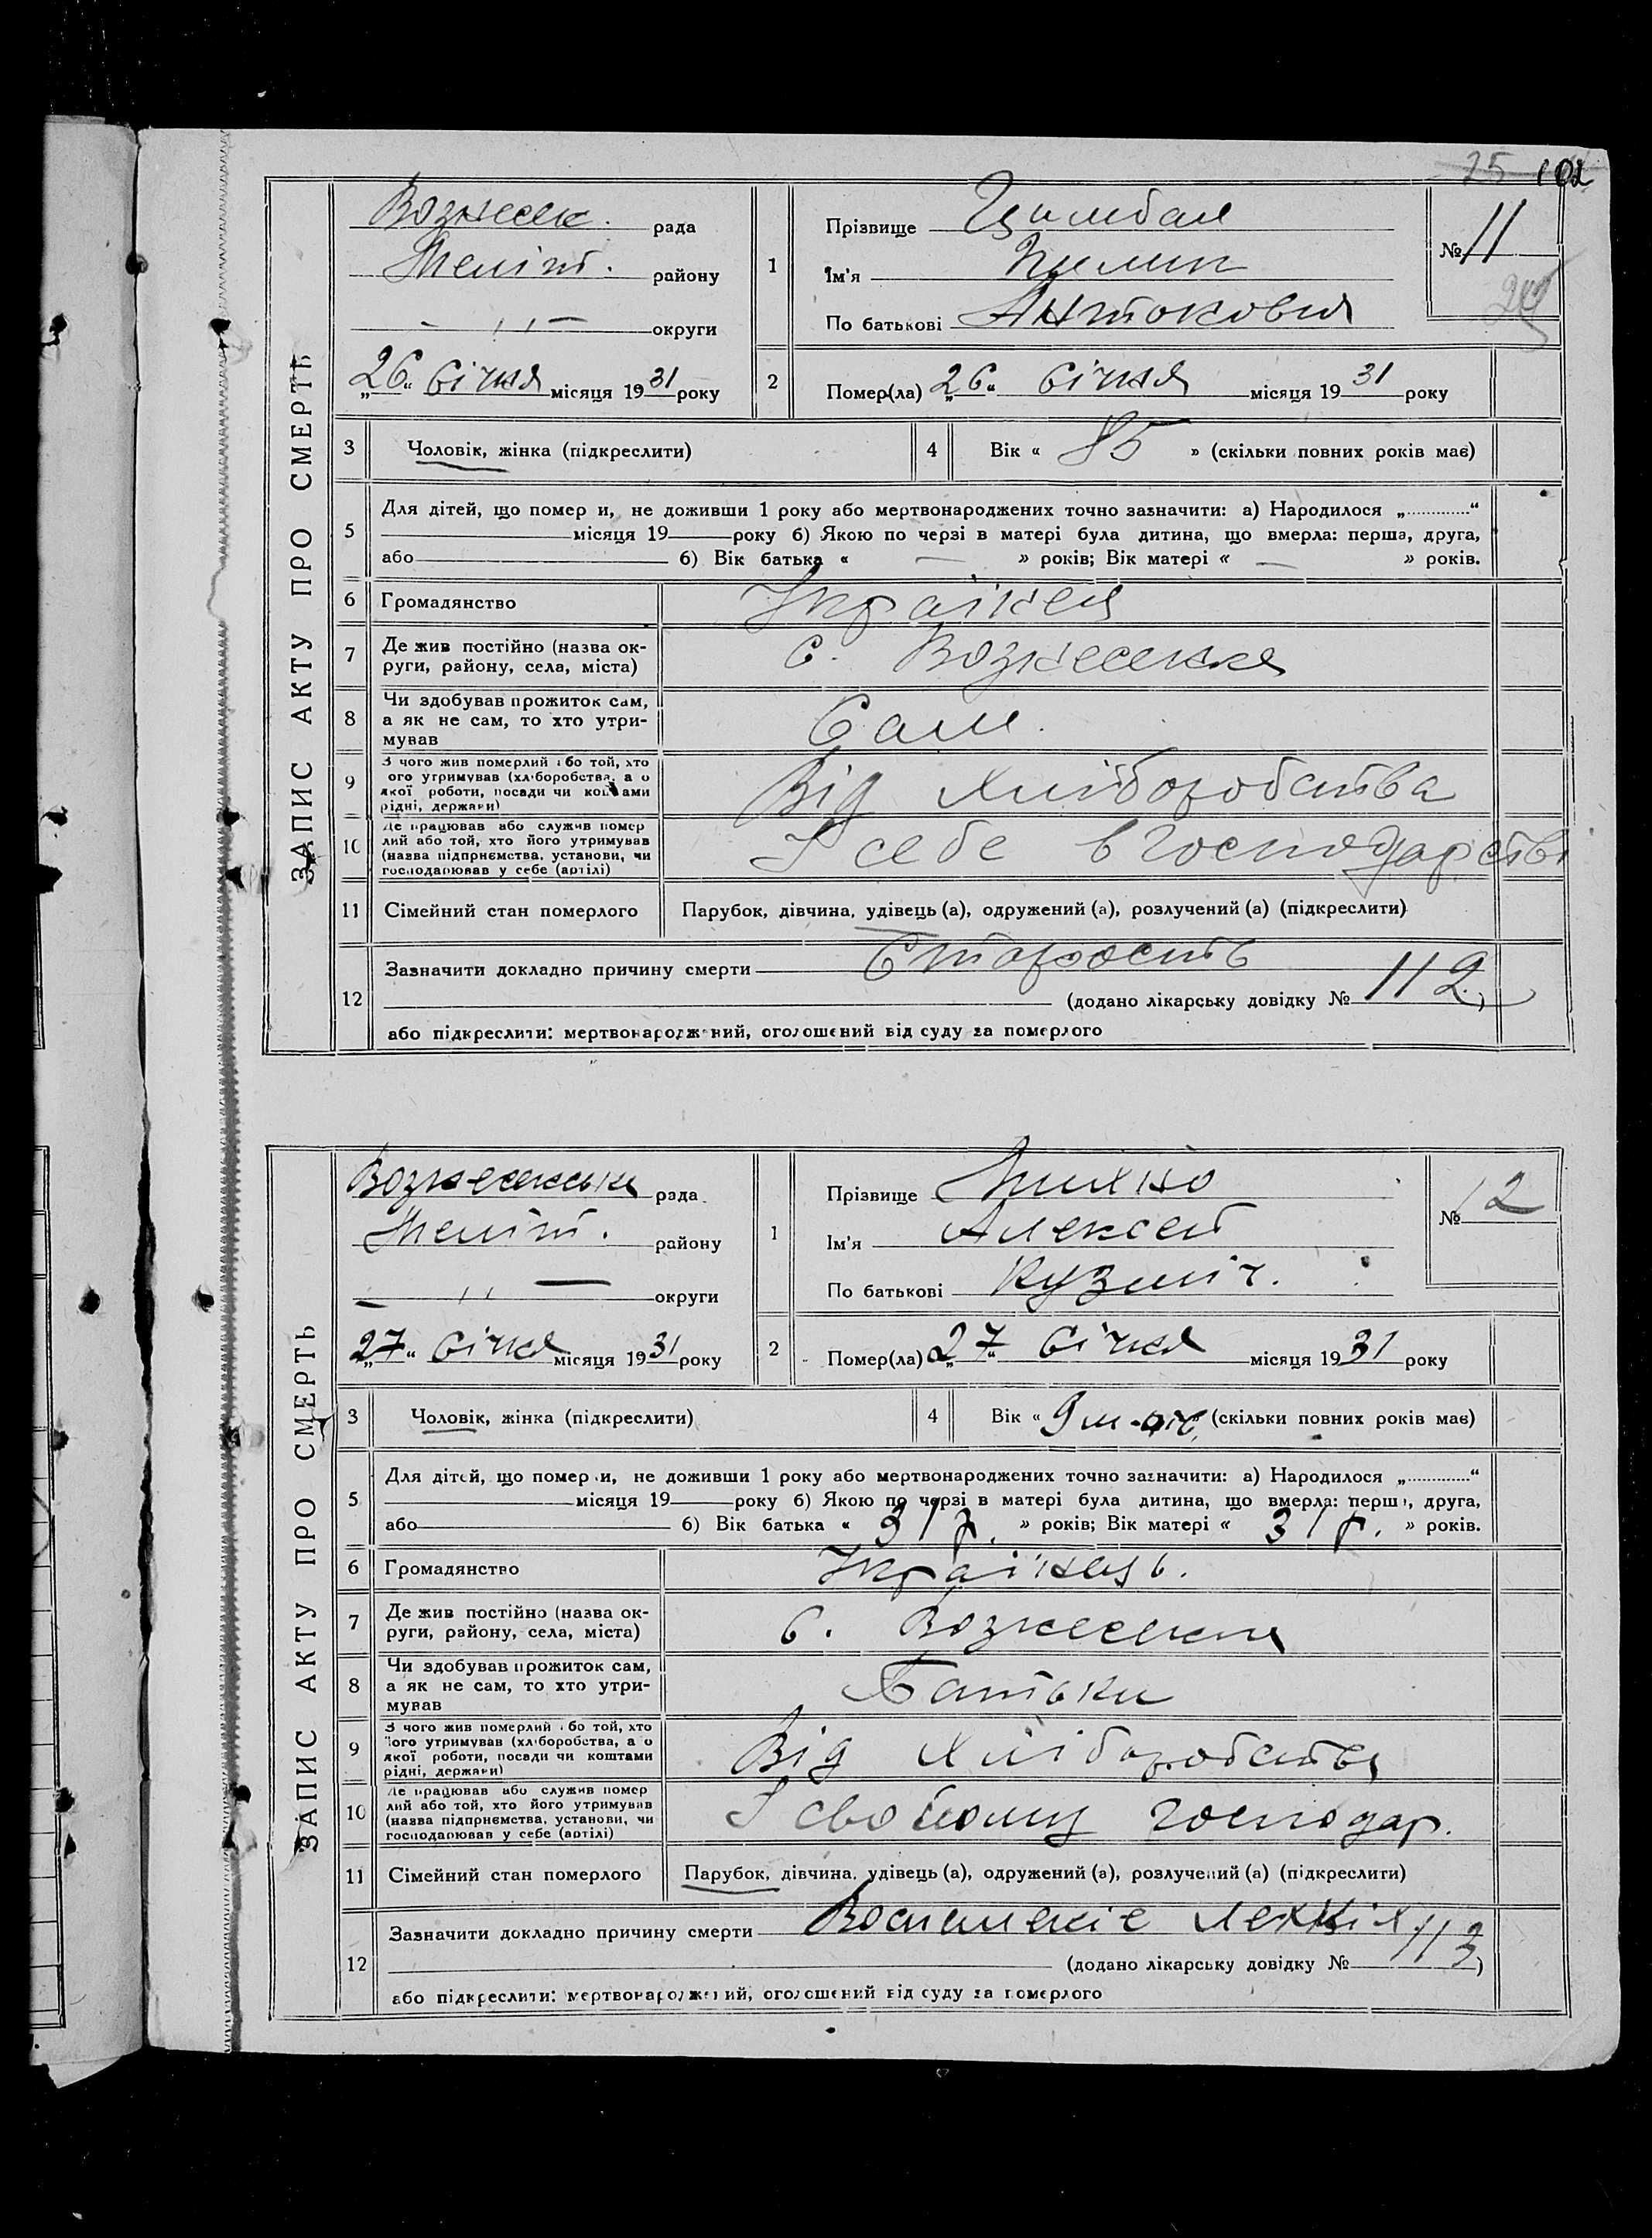 25 102
ЗАПИС АКТУ ПРО СМЕРТЬ
Вознесен. рада
Меліт. району
— ,, — округи
„26“ Січня місяця 1931 року
1
Прізвище Цимбал
Ім'я Пилип
По батькові Антонович
№ 11
2
Помер(ла) „26“ Січня місяця 1931 року
3 Чоловік, жінка (підкреслити)
4 Вік « 85 » (скільки повних років має)
5 Для дітей, що помер и, не доживши 1 року або мертвонароджених точно зазначити: а) Народилося „............“
місяця 19 року б) Якою по черзі в матері була дитина, що вмерла: перша, друга,
або б) Вік батька « — » років; Вік матері « — » років.
6 Громадянство
7 Де жив постійно (назва ок-
руги, району, села, міста) С. Вознесенка
8 Чи здобував прожиток сам,
а як не сам, то хто утри-
мував Сам.
9 З чого жив померлий або той, хто
ого утримував (хліборобства, а о
якої роботи, посади чи коштами
рідні, держави) Від хліборобства
10 Де працював або служив помер
лий або той, хто його утримував
(назва підприємства, установи, чи
господарював у себе (артілі) У себе в господарстві
11 Сімейний стан померлого Парубок, дівчина, удівець (а), одружений (а), розлучений (а) (підкреслити)
12 Зазначити докладно причину смерти Старость
(додано лікарську довідку № 112)
або підкреслити: мертвонароджений, оголошений від суду за померлого
ЗАПИС АКТУ ПРО СМЕРТЬ
Вознесенська рада
Меліт. району
— ,, — округи
„27“ Січня місяця 1931 року
1
Прізвище
Ім'я Алексей
По батькові Кузміч.
№ 12
2
Помер(ла) „27“ Січня місяця 1931 року
3 Чоловік, жінка (підкреслити)
4 Вік « 9 м-ців (скільки повних років має)
5 Для дітей, що помер и, не доживши 1 року або мертвонароджених точно зазначити: а) Народилося „............“
місяця 19 року б) Якою по черзі в матері була дитина, що вмерла: перша, друга,
або б) Вік батька « 31 р. » років; Вік матері « 31 р. » років.
6 Громадянство Українець.
7 Де жив постійно (назва ок-
руги, району, села, міста) С. Вознесенка
8 Чи здобував прожиток сам,
а як не сам, то хто утри-
мував Батьки
9 З чого жив померлий або той, хто
його утримував (хліборобства, а о
якої роботи, посади чи коштами
рідні, держави) Від хліборобства
10 Де працював або служив помер
лий або той, хто його утримував
(назва підприємства, установи, чи
господарював у себе (артілі) У своёму господар.
11 Сімейний стан померлого Парубок, дівчина, удівець (а), одружений (а), розлучений (а) (підкреслити)
12 Зазначити докладно причину смерти Воспаленіе
(додано лікарську довідку № 113)
або підкреслити: мертвонароджений, оголошений від суду за померлого